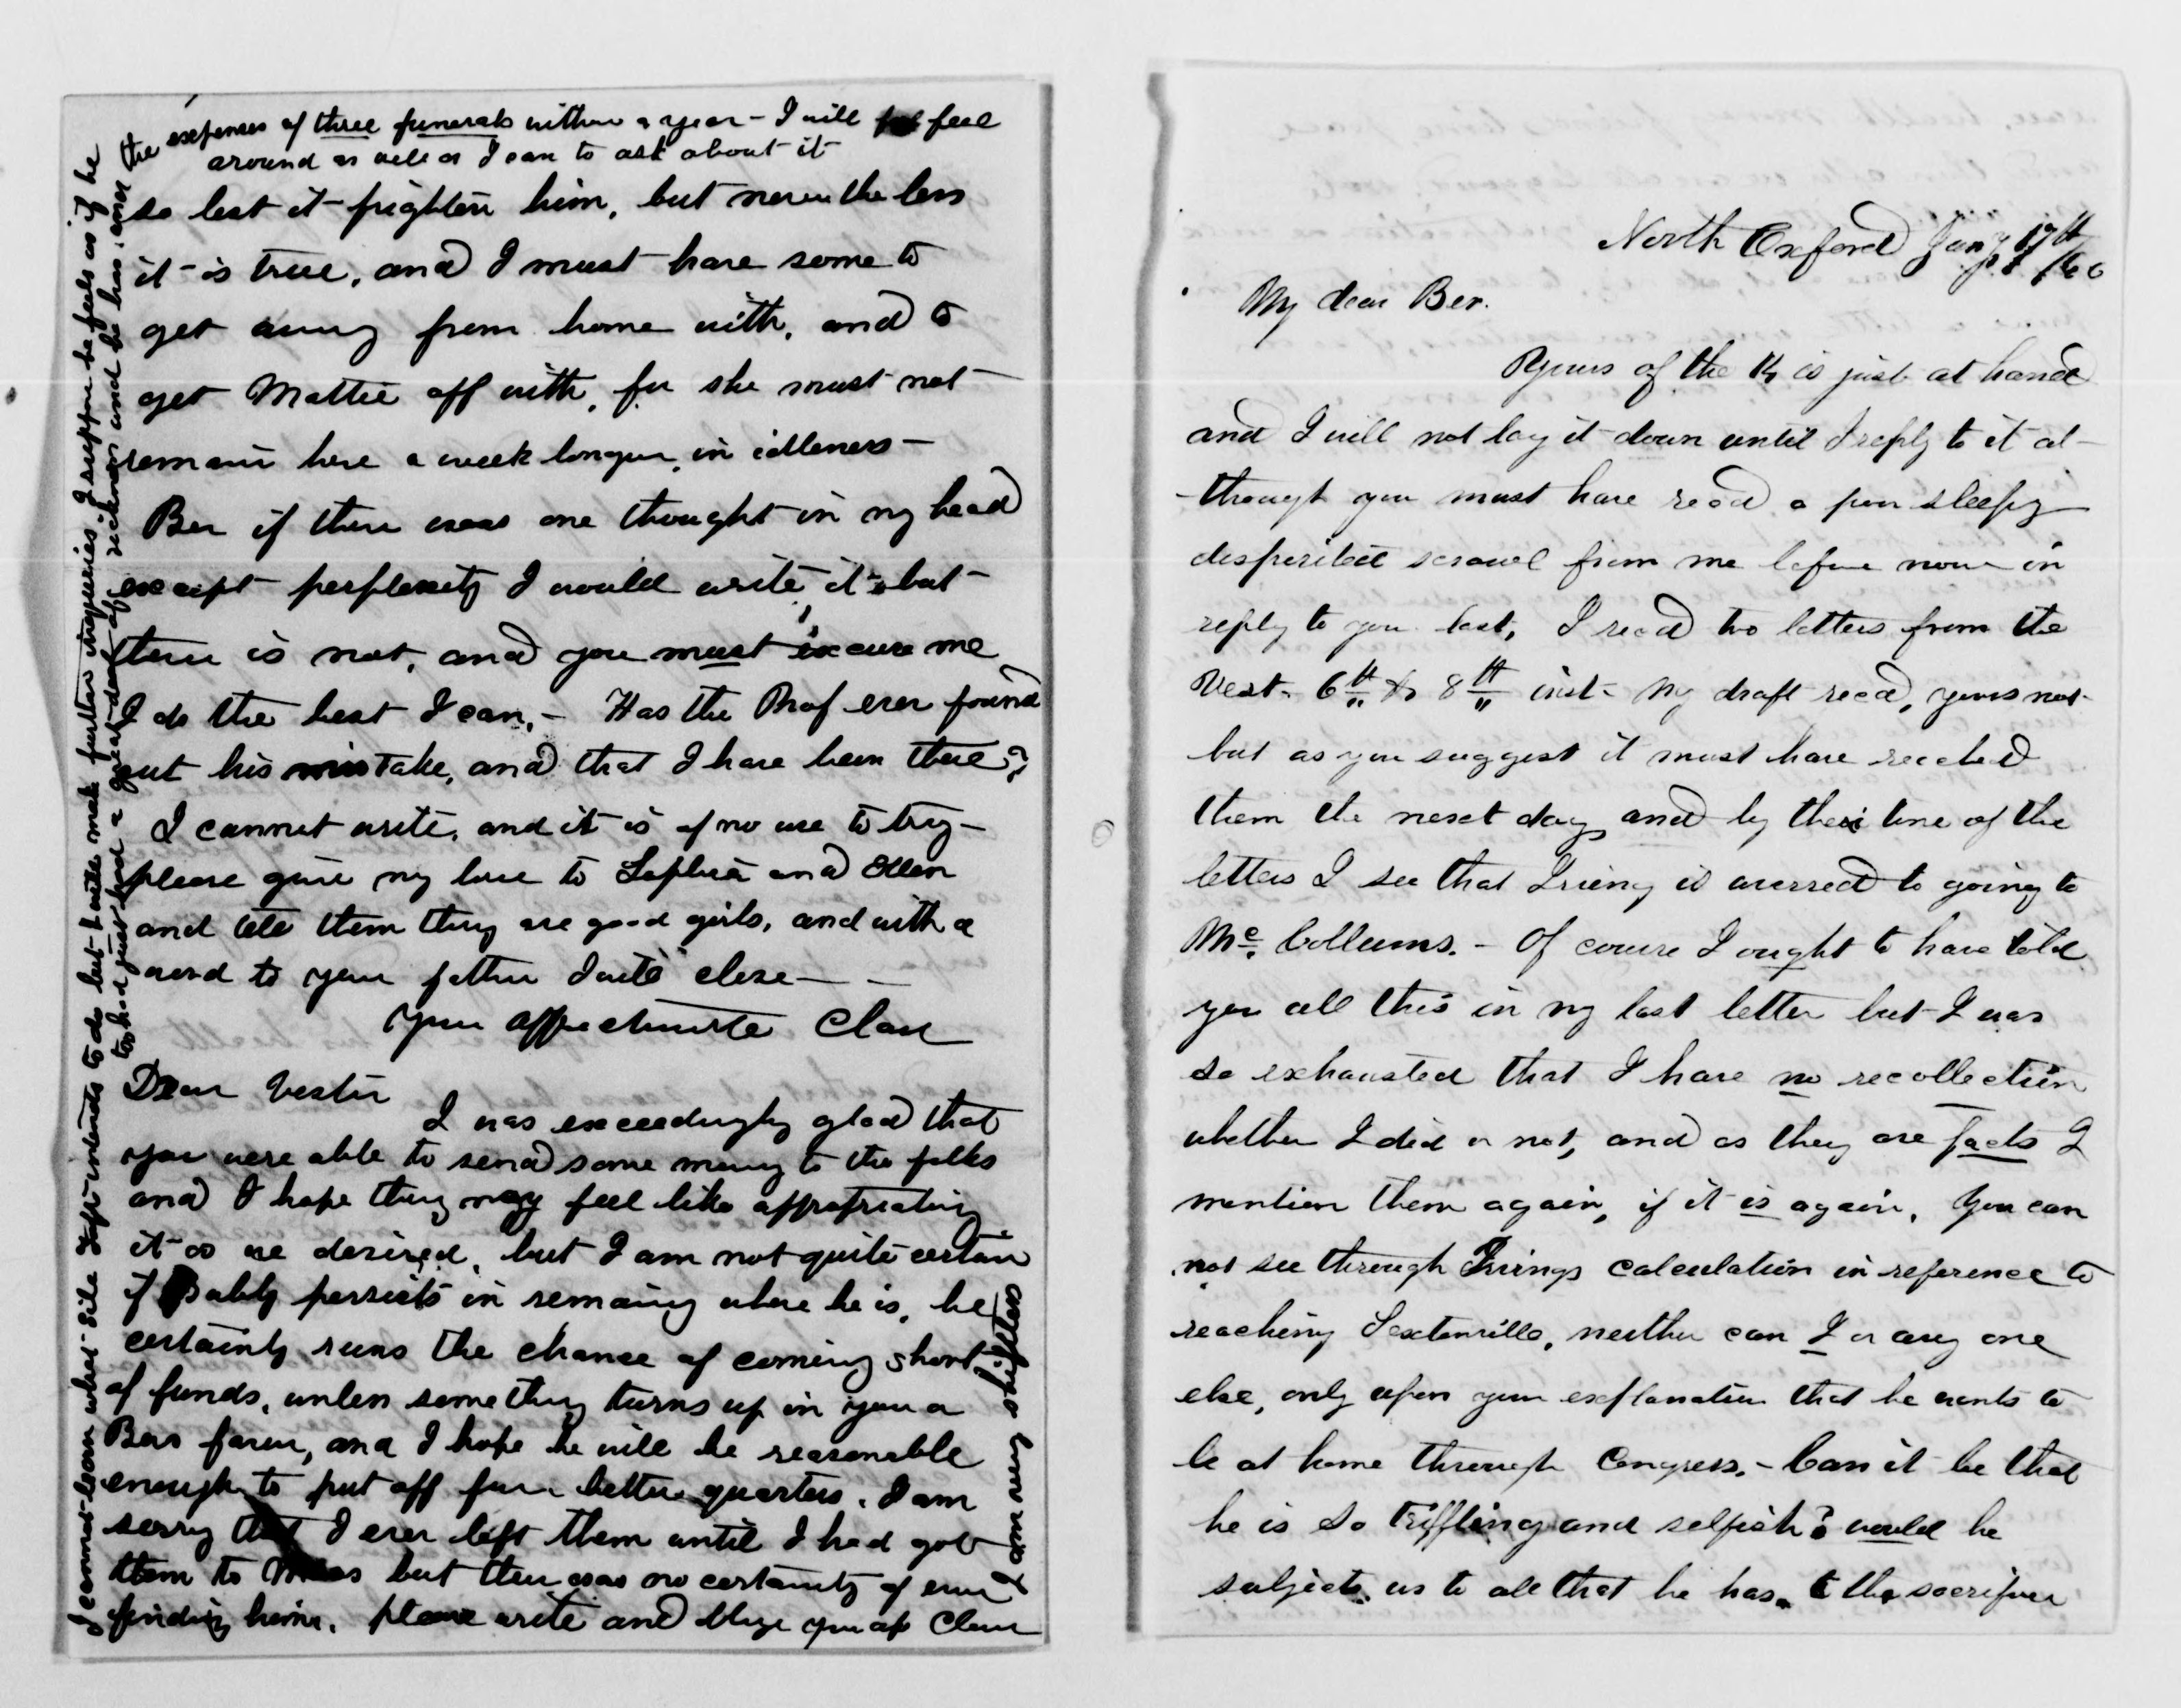 the expenses of three funerals within a year - I will feel
around as well as I can to ask about it
so lest it frighten him, but never the less
it is true, and I must have some to
get away from home with, and to
get Mattie off with, for she must not
remain here a week longer, in idleness -
Ber if there was one thought in my head
except perplexity I would write it, but
there is not, and you must excuse me
I do the best I can, - Has the Prof ever found
out his mistake, and that I have been there?
I cannot write, and it is of no use to try -
please give my love to and Ellen
and tell them they are good girls, and with a
word to your father I will close -
Your affectionate Clara
Dear Vester
I was exceedingly glad that
you were able to send some money to the folks
and I hope they may feel like appropriating
it as we desired, but I am not quite certain
if Bubby persists in remaing where he is, he
certainly runs the chance of coming short
of funds, unless something turns up in your or
Bers favor, and I hope he will be reasonable
enough to put off for better quarters. I am
sorry that I ever left them until I had got
them to but there was no certainty of ever
finding him. please write and oblige your aff Clara
I am very sorry
I cannot learn what Sile Taft intends to do but I will make further inquiries I suppose he feels as if he
had just had a great deal of sickness and he has, and
North Oxford Jany 17th /60
My dear Ber.
Yours of the 14 is just at hand
and I will not lay it down until I reply to it al-
-though you must have recd a poor sleepy
dispirited scrawl from me before now in
reply to your last, I recd two letters from the
West - 6th & 8th inst - My draft recd, yours not
but as you suggest it must have reached
them the next day, and by the tone of the
letters I see that Irving is averred to going to
Mc. Collums. - Of course I ought to have told
you all this in my last letter but I was
so exhausted that I have no recollection
whether I did or not, and as they are facts I
mention them again, if it is again, You can
not see through Irvings calculation in reference to
reaching Sextonville, neither can I or any one
else, only upon your explanation that he wants to
be at home through Congress. - Can it be that
he is so triffling and selfish? would he
subject us to all that he has, to the sacrifices